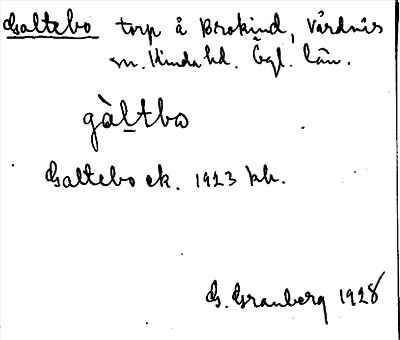 Galtebo torp å Brokind, Vårdnäs
sn. Kinda hd. Ögl. län.
gàltbo
Galtebo ek. 1923 kb.
G. Granberg 1928